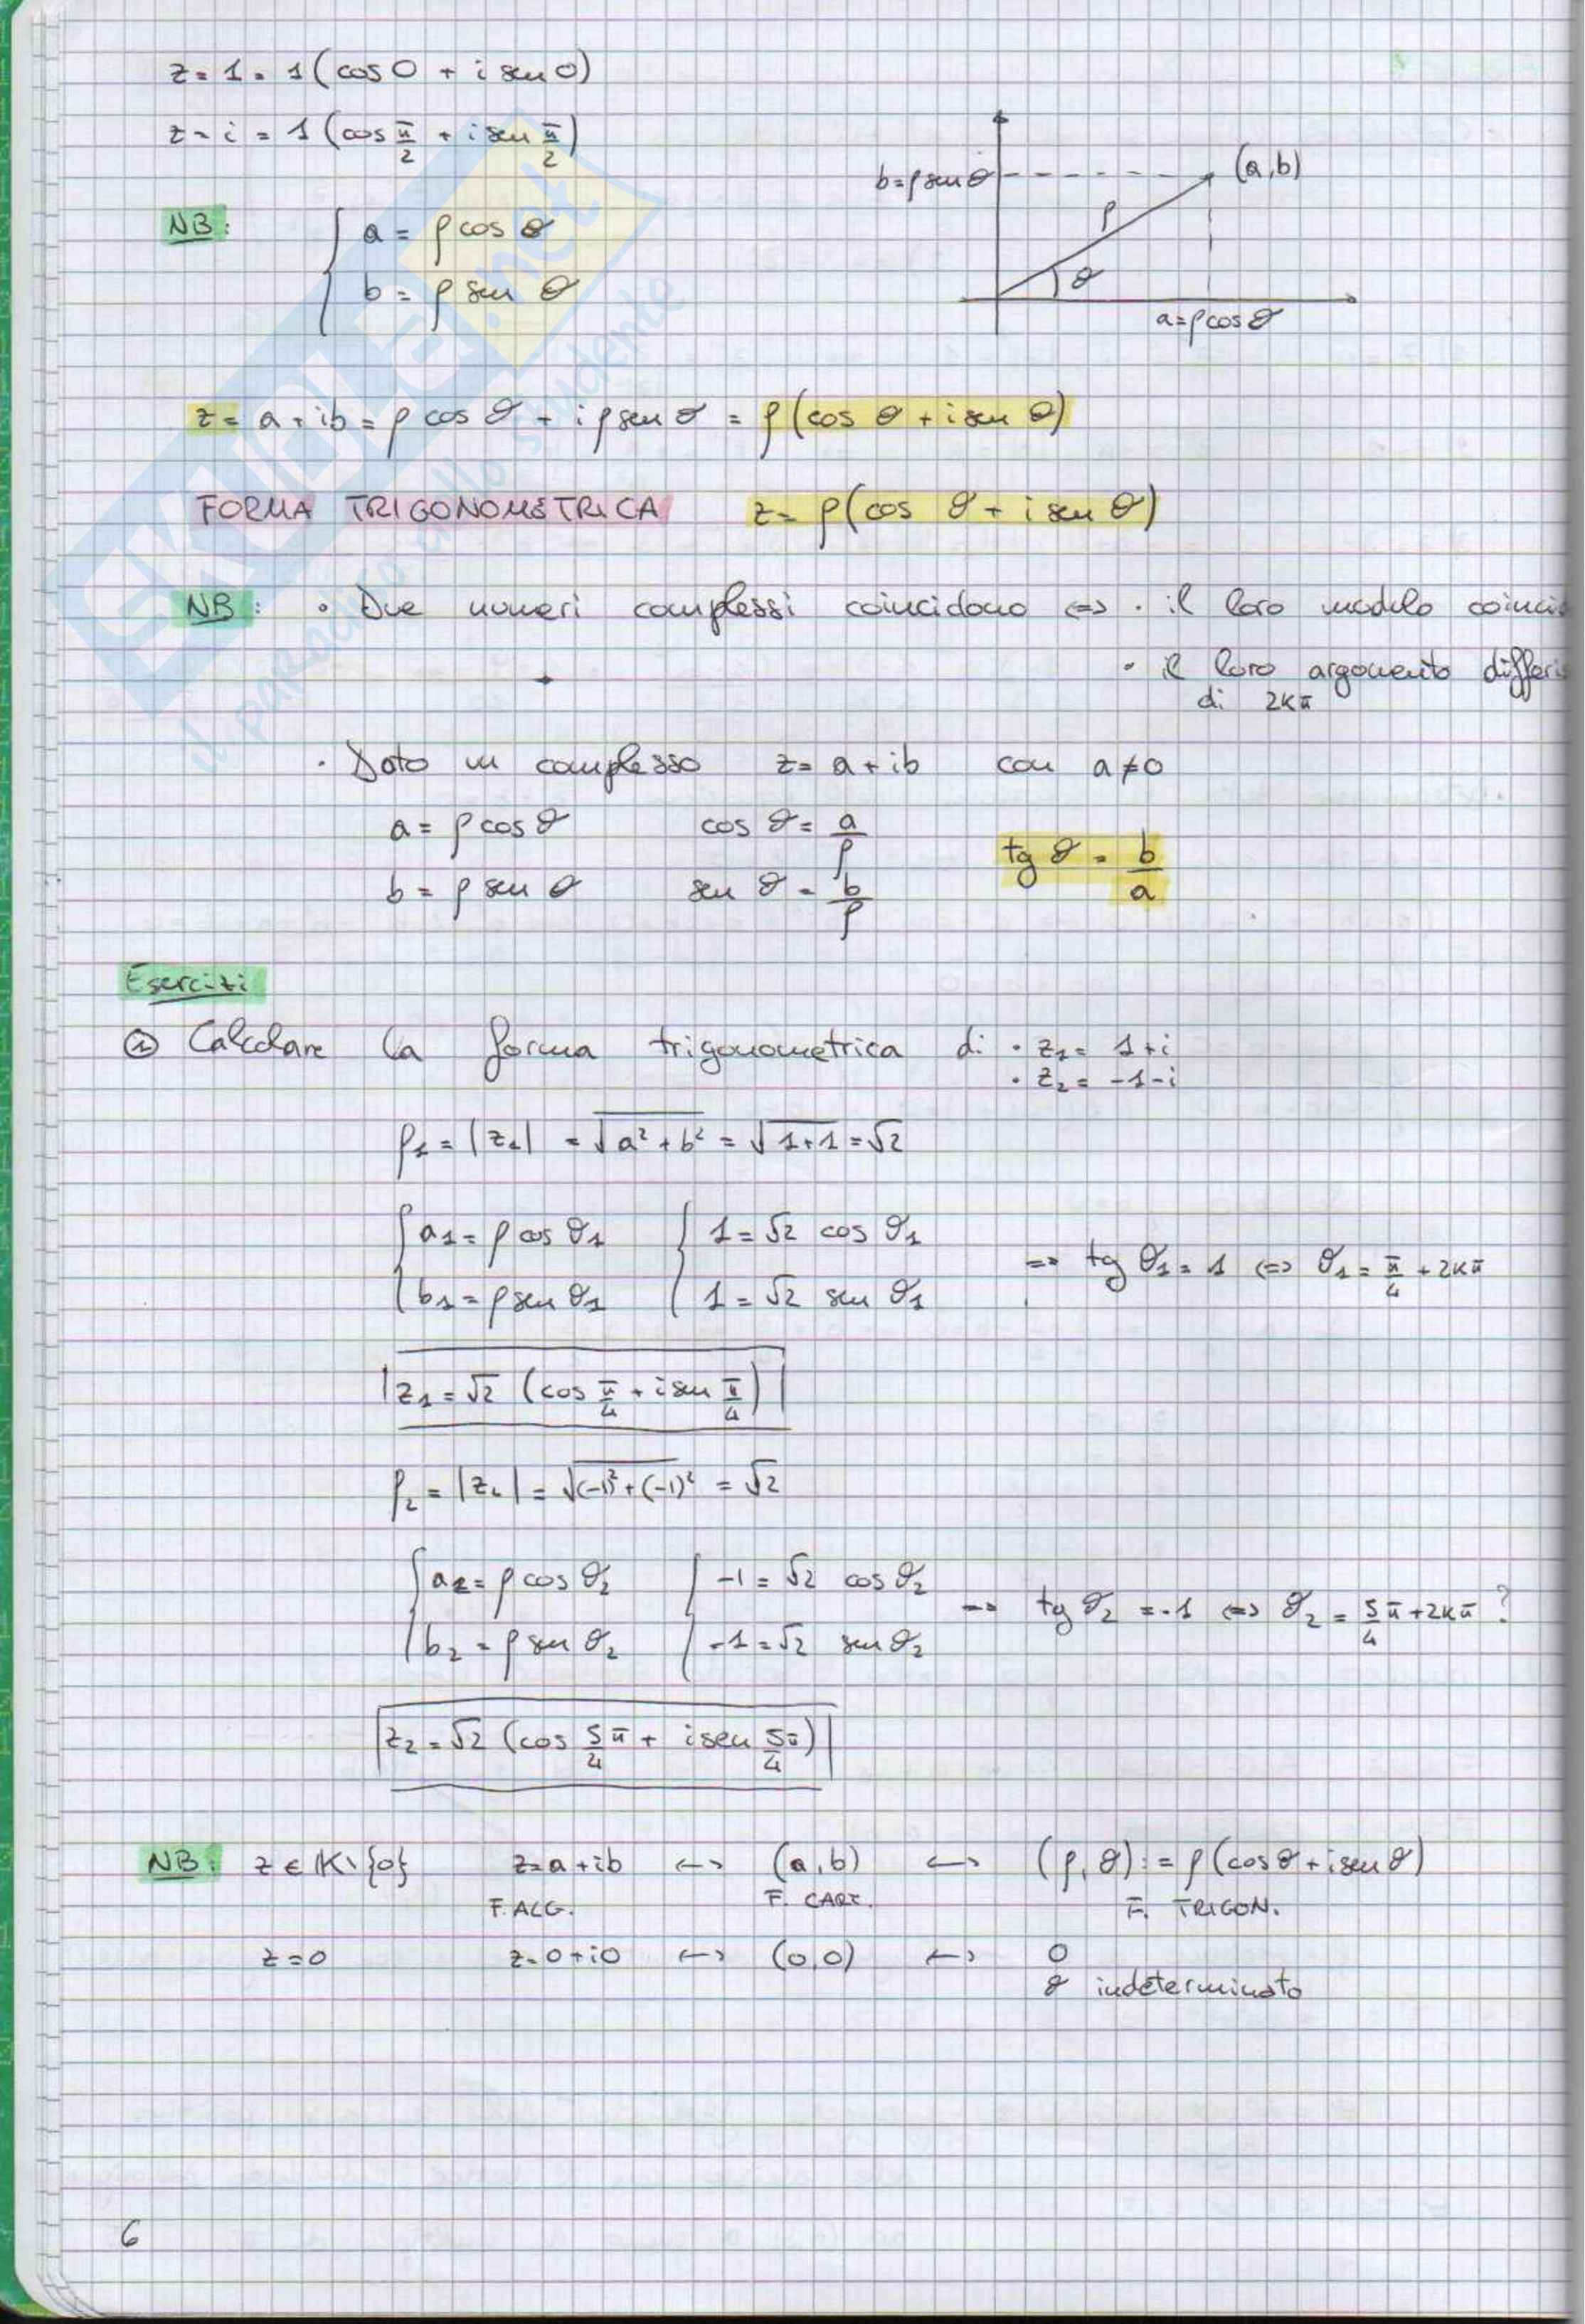 z = 1 = 1 (cos 0 + i sen 0)
z = i = 1 (cos π/2 + i sen π/2)
NB: { a = ρ cos θ
b = ρ sen θ
b = ρ sen θ
(a,b)
ρ
θ
a = ρ cos θ
z = a + ib = ρ cos θ + i ρ sen θ = ρ (cos θ + i sen θ)
FORMA TRIGONOMETRICA z = ρ (cos θ + i sen θ)
NB: • Due numeri complessi coincidono <=> • il loro modulo coincid
• il loro argomento differis
di 2kπ
• Dato un complesso z = a + ib con a ≠ 0
a = ρ cos θ cos θ = a/ρ
b = ρ sen θ sen θ = b/ρ
tg θ = b/a
Esercizi
① Calcolare la forma trigonometrica di • z₁ = 1+i
• z₂ = -1-i
ρ₁ = |z₁| = √(a² + b²) = √(1+1) = √2
{ a₁ = ρ cos θ₁ { 1 = √2 cos θ₁
b₁ = ρ sen θ₁ 1 = √2 sen θ₁
=> tg θ₁ = 1 <=> θ₁ = π/4 + 2kπ
z₁ = √2 (cos π/4 + i sen π/4)
ρ₂ = |z₂| = √((-1)² + (-1)²) = √2
{ a₂ = ρ cos θ₂ { -1 = √2 cos θ₂
b₂ = ρ sen θ₂ -1 = √2 sen θ₂
=> tg θ₂ = -1 <=> θ₂ = 5/4 π + 2kπ ?
z₂ = √2 (cos 5/4 π + i sen 5/4 π)
NB: z ∈ K\{0} z = a + ib <-> (a,b) <-> (ρ, θ) := ρ (cos θ + i sen θ)
F. ALG. F. CART. F. TRIGON.
z = 0 z = 0 + i0 <-> (0,0) <-> 0
θ indeterminato
6
SKUOLA.net
il paradiso dello studente